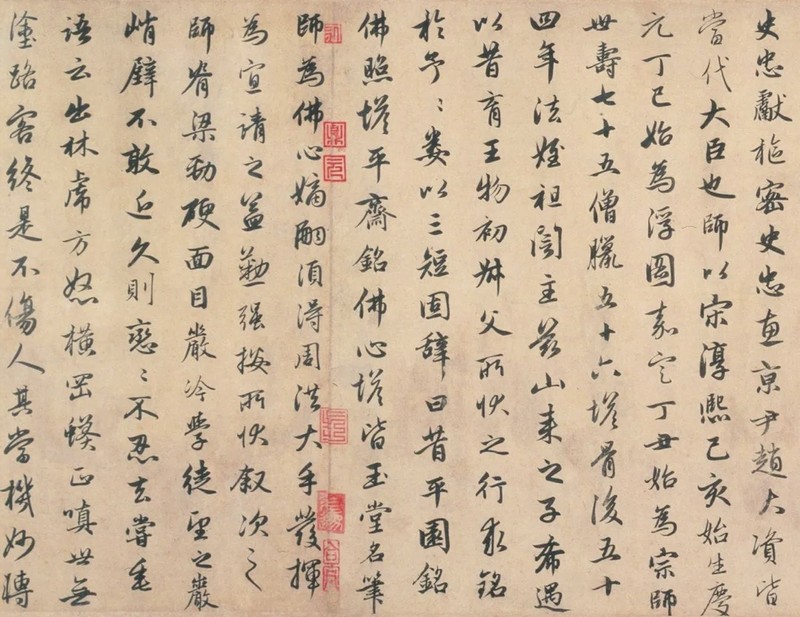 史忠獻樞密史忠惠京尹趙大資皆
當代大臣也師以宋淳熙己亥始生慶
元丁巳始為浮圖嘉定丁丑始為宗師
世壽七十五僧臘五十六塔骨後五十
四年法姪祖誾主茲山來之子希遇
以昔育王物初叔父所狀之行求銘
於予予婁以三短固辭曰昔平園銘
佛照塔平齋銘佛心塔皆玉堂名筆
師為佛心嫡嗣須得周洪大手發揮
為宣請之益勤強按所狀叙次之
師脊梁勁硬面目嚴冷學徒望之巖
峭壁不敢近久則戀戀不忍去嘗垂
語云出林虎方怒橫岡蟒正嗔世無
塗路客終是不傷人其當機妙轉